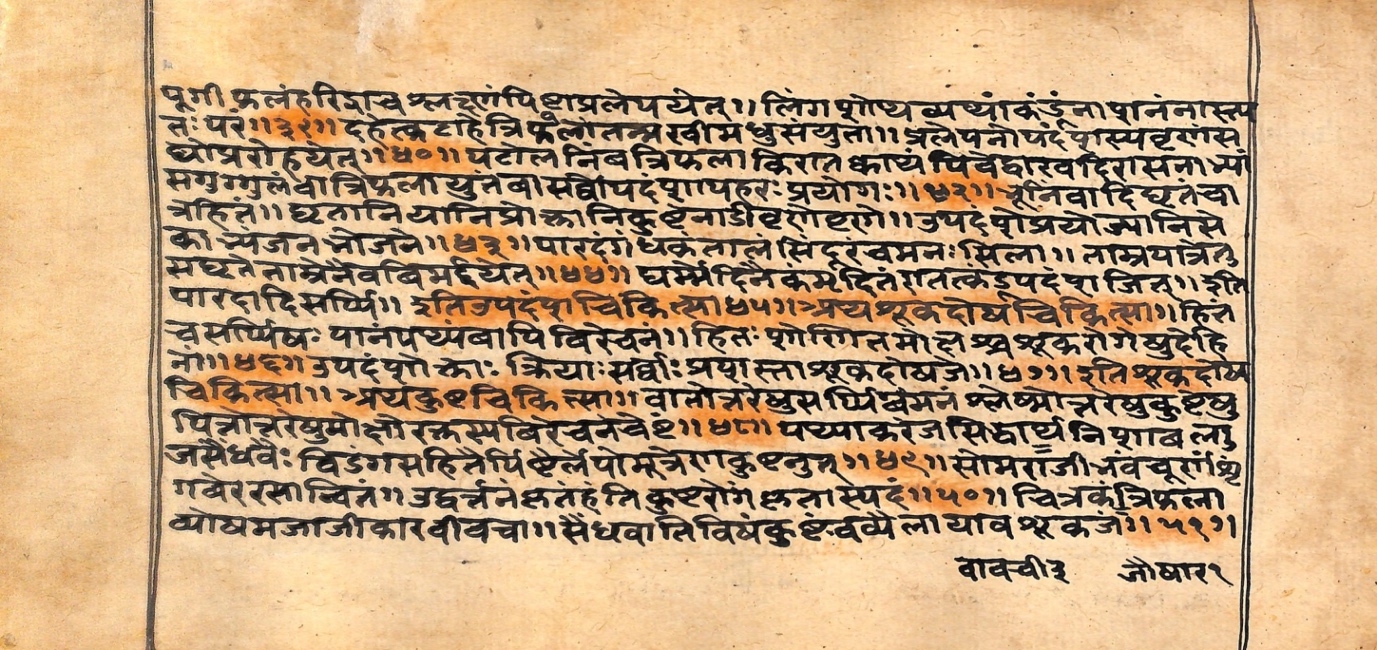 पूगीफलंहरिद्राच श्लक्ष्णंपिष्टाप्रलेपयेत्॥ लिंगशोथ्यव्यथ्यांकंडूंनाशनंनास्त्य
तः परं॥३९॥ दहेत्कटाहेत्रिफलांतम्मखीमधुसंयुतां॥ प्रलेपनोपदंशस्यवृणंस
द्योप्ररोहयेत्॥४०॥ पटोलनिंबत्रिफलाकिरातक्काथंपिबेद्वाखदिरासनाभ्यां
सगुग्गुलंवात्रिफलायुतंवासर्वोपदंशापहरः प्रयोगः॥४२॥ भूनिवादिघृतंचा
त्रहितं॥ घृतानियानिप्रोक्तानिकुष्टनाडीवृणेवृणे॥ उपदंशेप्रयोज्यानिसे
काभ्यंजनभोजने॥४३॥ पारदंगंधकतालंसिंदूरंचमनःसिला॥ ताम्रपात्रेतु
सघृतेताम्रेनैवविमर्द्दयेत्॥४४॥ घर्म्मेदिनैकंमर्दितंगतत्कंडुपदंशजित्॥ इति
पारदादिसर्प्पि॥ इतिउपदंशचिकित्सा४५॥ अथशूकदोर्षाचिकित्सा॥ हितं
चसर्प्पिषः पानंपथ्यंवापिविरेचनं॥ हितः शोणितमोक्षश्चशूकरोगेषुदेहि
नां॥४६॥ उपदंशोक्ताः क्रियाःसर्वाः प्रशस्ताशूकदोषजे॥४७॥ इतिशूकदोष
चिकित्सा॥ अथकुष्टचिकित्सा॥ वातोत्तरेषुसर्प्पिर्वमनंश्लेष्मोत्तरेषुकुष्टेषु
पित्तोत्तरेषुमोक्षोरक्तस्यविरेचनंचेष्टं॥४८॥ पथ्याकरंजसिद्धार्थनिशावल्गु
जसैंधवैः विडंगसहितैर्पिष्टैर्लेपोमूत्रेणकुष्टनुत्॥४९॥ सोमराजीभवंचूर्णंशृं
गवेररसान्वितं॥ उद्वर्त्तनंकृतंहंतिकुष्टरोगंकृतास्पदं॥५०॥ चित्रकंत्रिफला
व्योषमजाजीकारवीवचा॥ सैंधवातिविषंकुष्टंचव्येलायावशूकजं॥५१॥
वावचीइ जौषार१